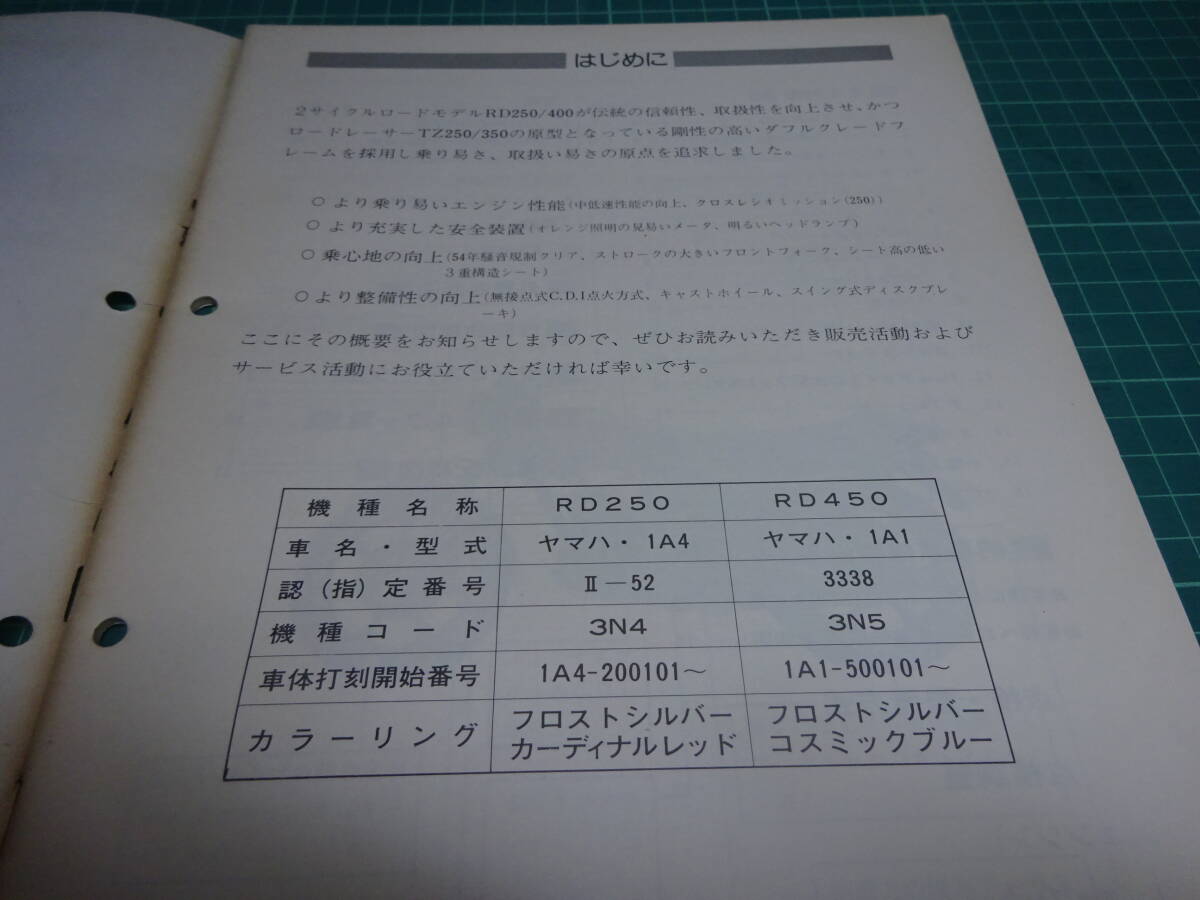 はじめに
2サイクルロードモデルRD250/400が伝統の信頼性、取扱性を向上させ、かつ
ロードレーサーTZ250/350の原型となっている剛性の高いダブルクレードフ
レームを採用し乗り易さ、取扱い易さの原点を追求しました。
○より乗り易いエンジン性能(中低速性能の向上、クロスレシオミッション(250))
○より充実した安全装置(オレンジ照明の見易いメータ、明るいヘッドランプ)
○乗心地の向上(54年騒音規制クリア、ストロークの大きいフロントフォーク、シート高の低い
3重構造シート)
○より整備性の向上(無接点式C.D.I点火方式、キャストホイール、スイング式ディスクブレ
ーキ)
ここにその概要をお知らせしますので、ぜひお読みいただき販売活動および
サービス活動にお役立ていただければ幸いです。
機種名称 RD250 RD450
車名・型式 ヤマハ・1A4 ヤマハ・1A1
認(指)定番号 Ⅱ－52 3338
機種コード 3N4 3N5
車体打刻開始番号 1A4-200101～ 1A1-500101～
カラーリング フロストシルバー フロストシルバー
カーディナルレッド コスミックブルー